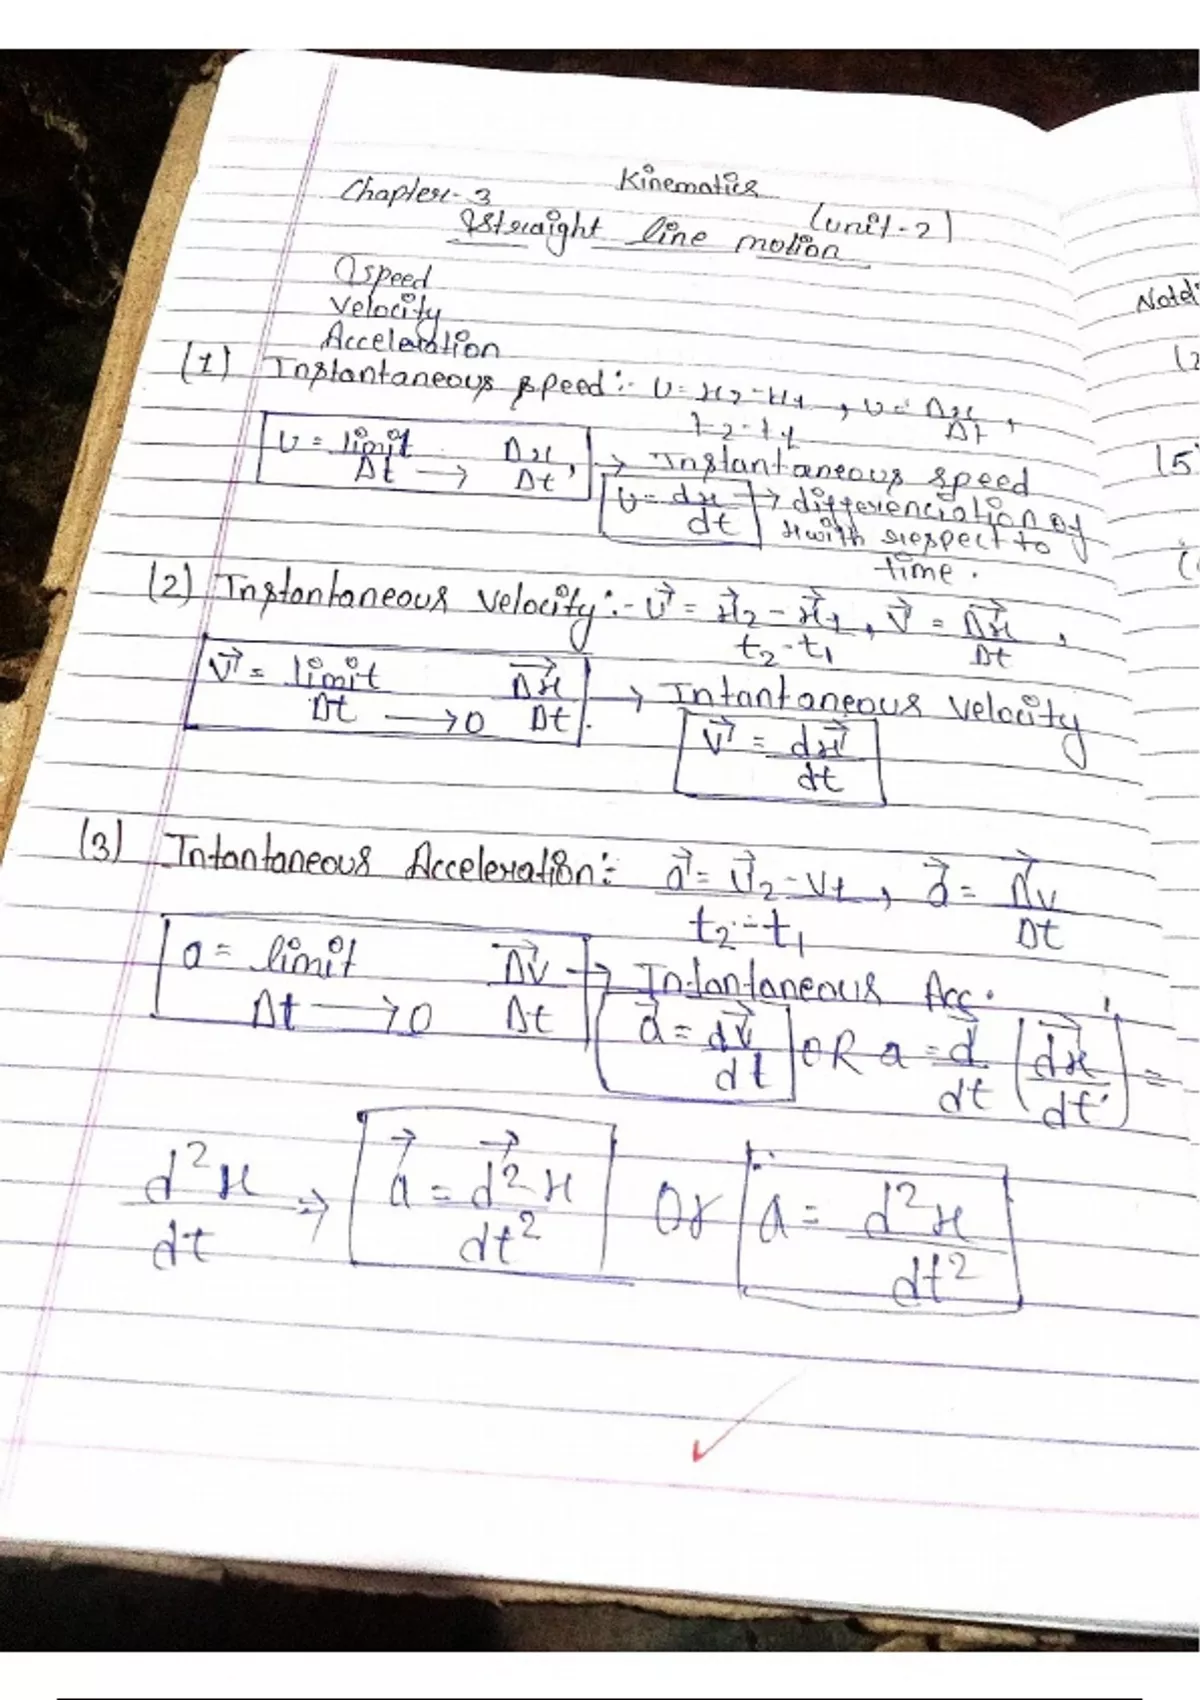 Kinematics
Chapter-3 (unit-2)
Straight line motion
speed
Velocity
Acceleration
(1) Instantaneous speed:- v = x2-x1 / t2-t1, v = Δx / Δt,
v = limit Δt → Δx / Δt, → Instantaneous speed
v = dx / dt → differenciation of
x with respect to
time.
(2) Instantaneous velocity:- v⃗ = x⃗2 - x⃗1 / t2-t1, v⃗ = Δx⃗ / Δt,
v⃗ = limit Δt → 0 Δx⃗ / Δt. → Intantaneous velocity
v⃗ = dx⃗ / dt
(3) Intantaneous Acceleration:- a⃗ = v⃗2 - v1 / t2-t1, a⃗ = Δv⃗ / Δt
a = limit Δt → 0 Δv⃗ / Δt → Intantaneous Acc.
a⃗ = dv⃗ / dt OR a = d⃗ / dt (dx⃗ / dt) =
d²x / dt → a⃗ = d²x⃗ / dt² Or a = d²x / dt²
Note:
(5